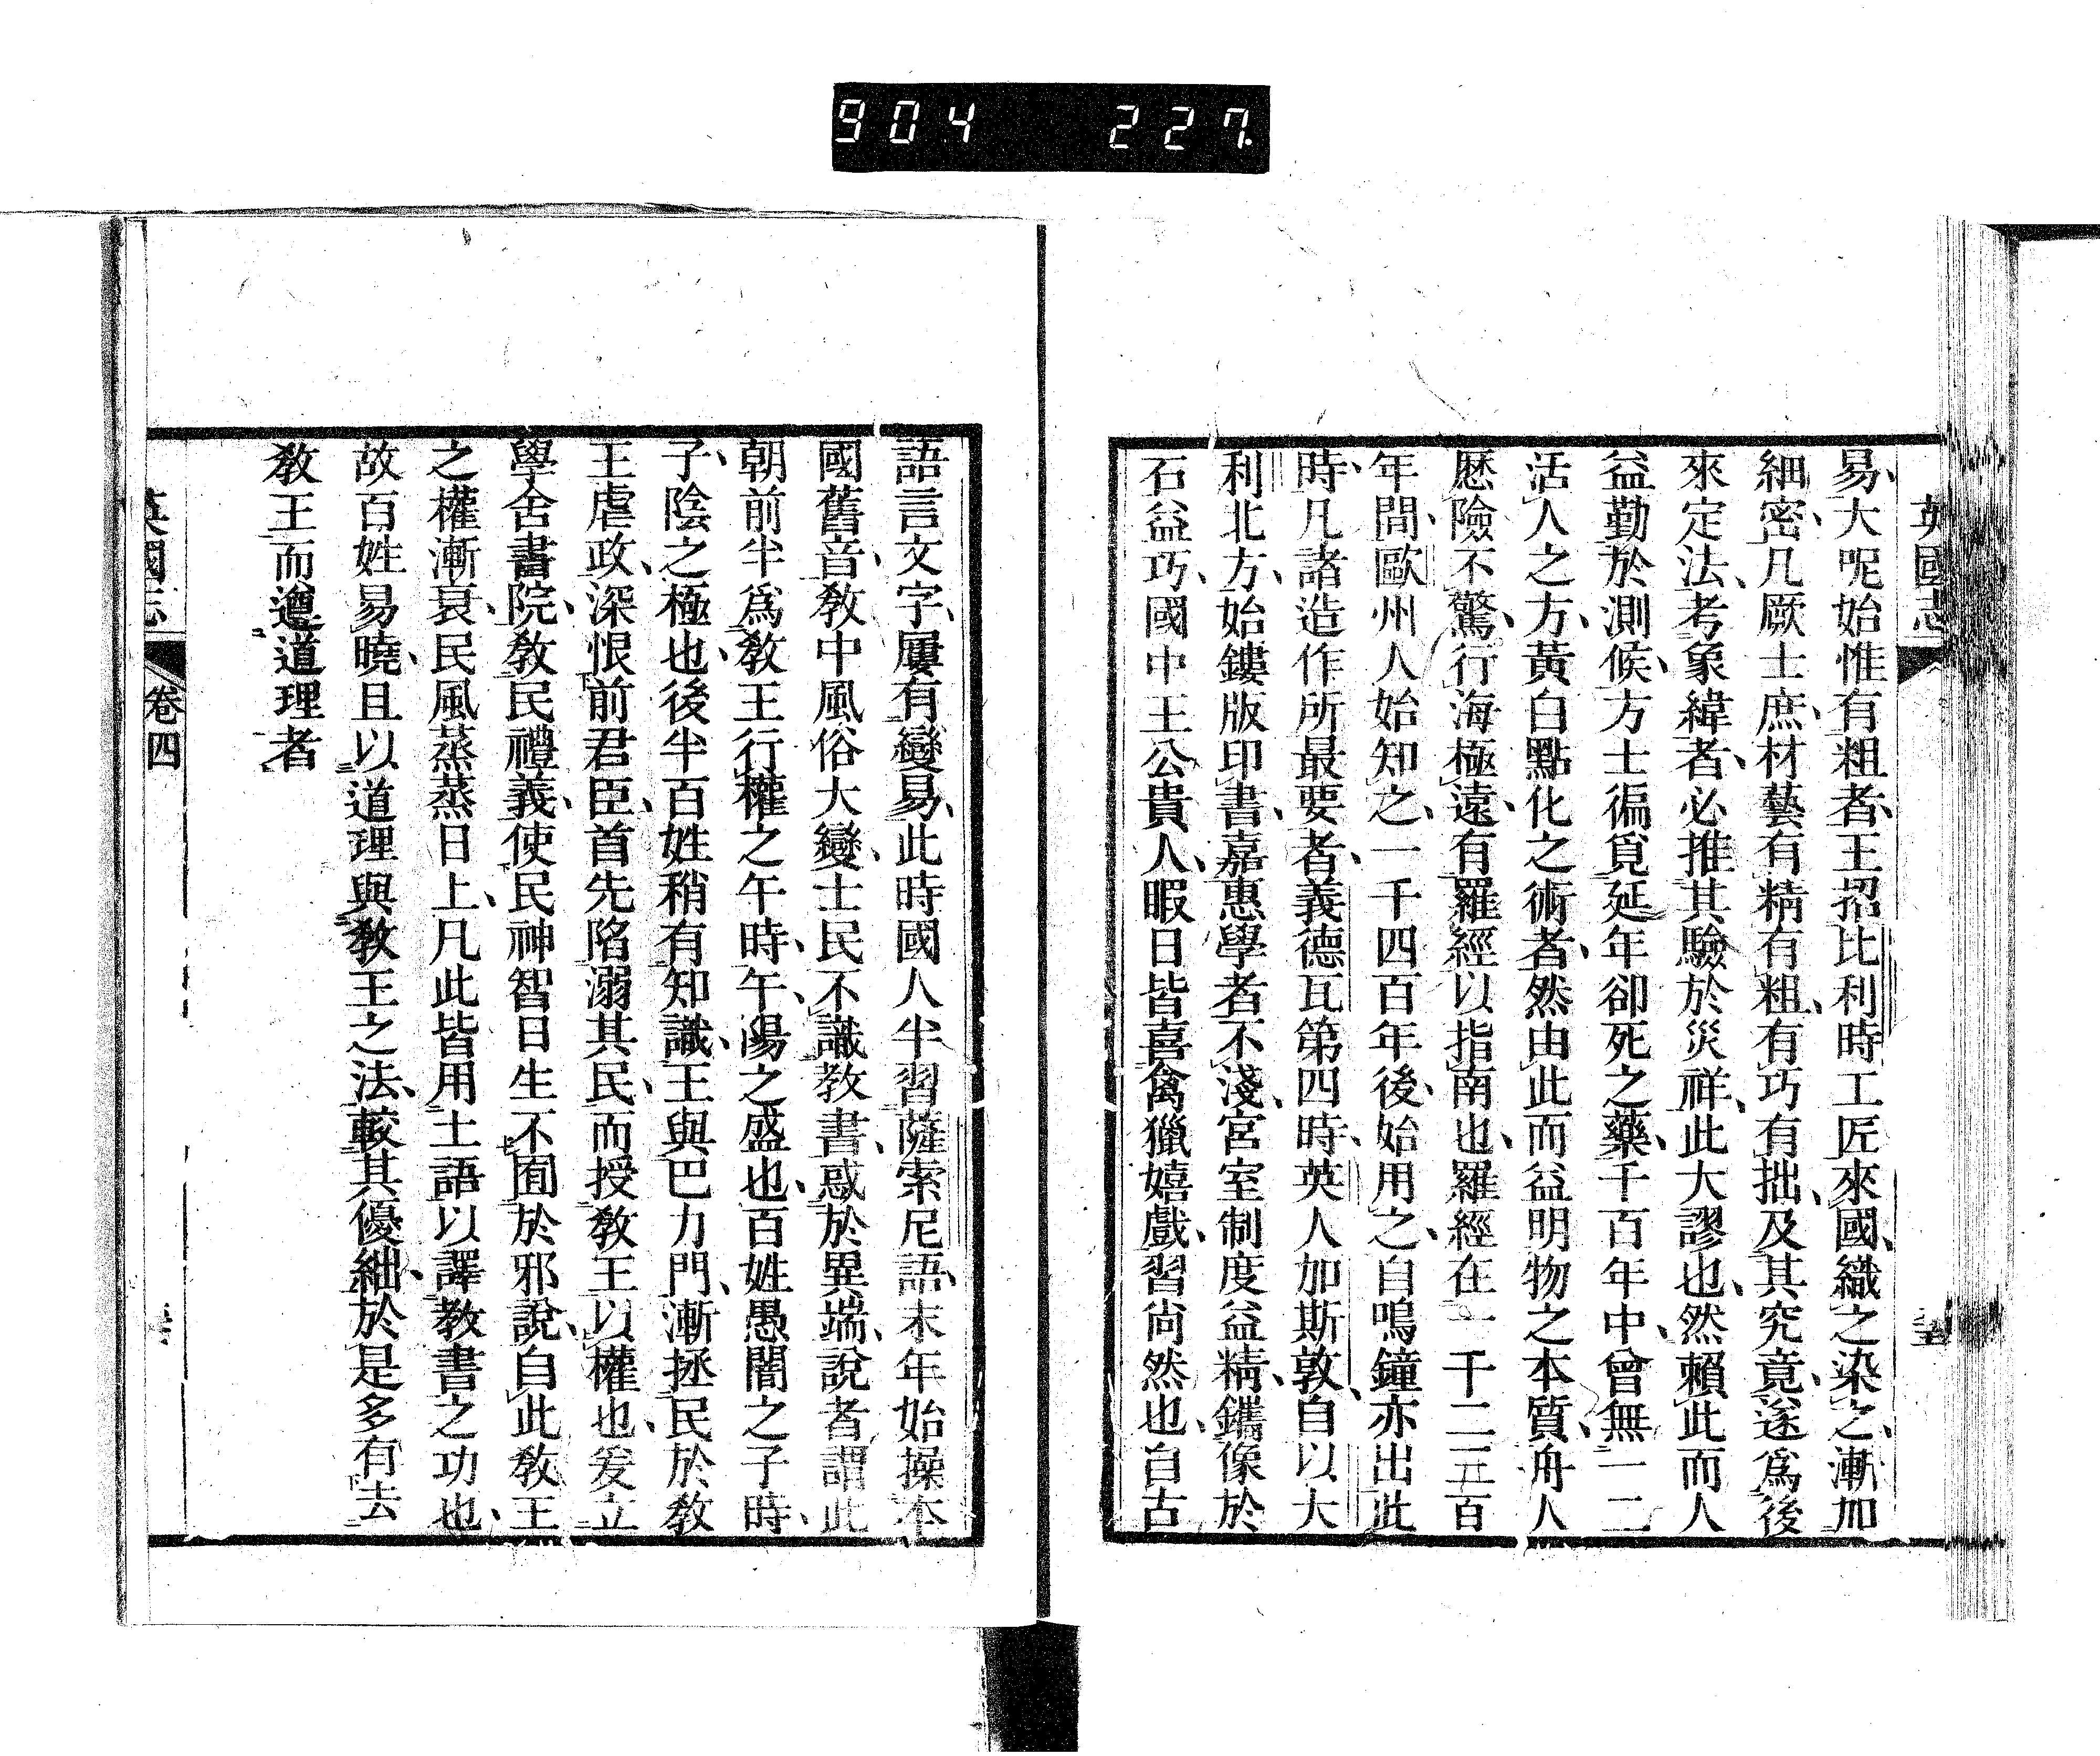 904 227
英國志
易、大呢始惟有粗者、王招比利時工匠來國、織之染之、漸加
細密、凡厥士庶、材藝有精有粗、有巧有拙、及其究竟、遂爲後
來定法、考象緯者、必推其驗於災祥、此大謬也、然賴此而人
益勤於測候、方士徧覓延年卻死之藥、千百年中、曾無一二
活人之方、黃白點化之術者、然由此而益明物之本質、舟人
歷險不驚、行海極遠、有羅經以指南也、羅經在一千二三百
年間、歐州人始知之、一千四百年後、始用之、自鳴鐘亦出此
時、凡諸造作所最要者、義德瓦第四時、英人加斯敦、自以大
利北方、始鏤版印書、嘉惠學者不淺、宮室制度益精、鐫像於
石益巧、國中王公貴人、暇日皆喜禽獵嬉戲、習尚然也、自古
語言文字、屢有變易、此時國人半習薩索尼語、末年始操本
國舊音、教中風俗大變、士民不識教書、惑於異端、說者謂此
朝前半爲教王行權之午時、午、陽之盛也、百姓愚闇之子時、
子、陰之極也、後半百姓稍有知識、王與巴力門、漸拯民於教
王虐政、深恨前君臣、首先陷溺其民、而授教王以權也、爰立
學舍書院、教民禮義、使民神智日生、不囿於邪說、自此教王
之權漸衰、民風蒸蒸日上、凡此皆用土語以譯教書之功也、
故百姓易曉、且以道理與教王之法、較其優絀、於是多有去
教王而遵道理者
英國志 卷四